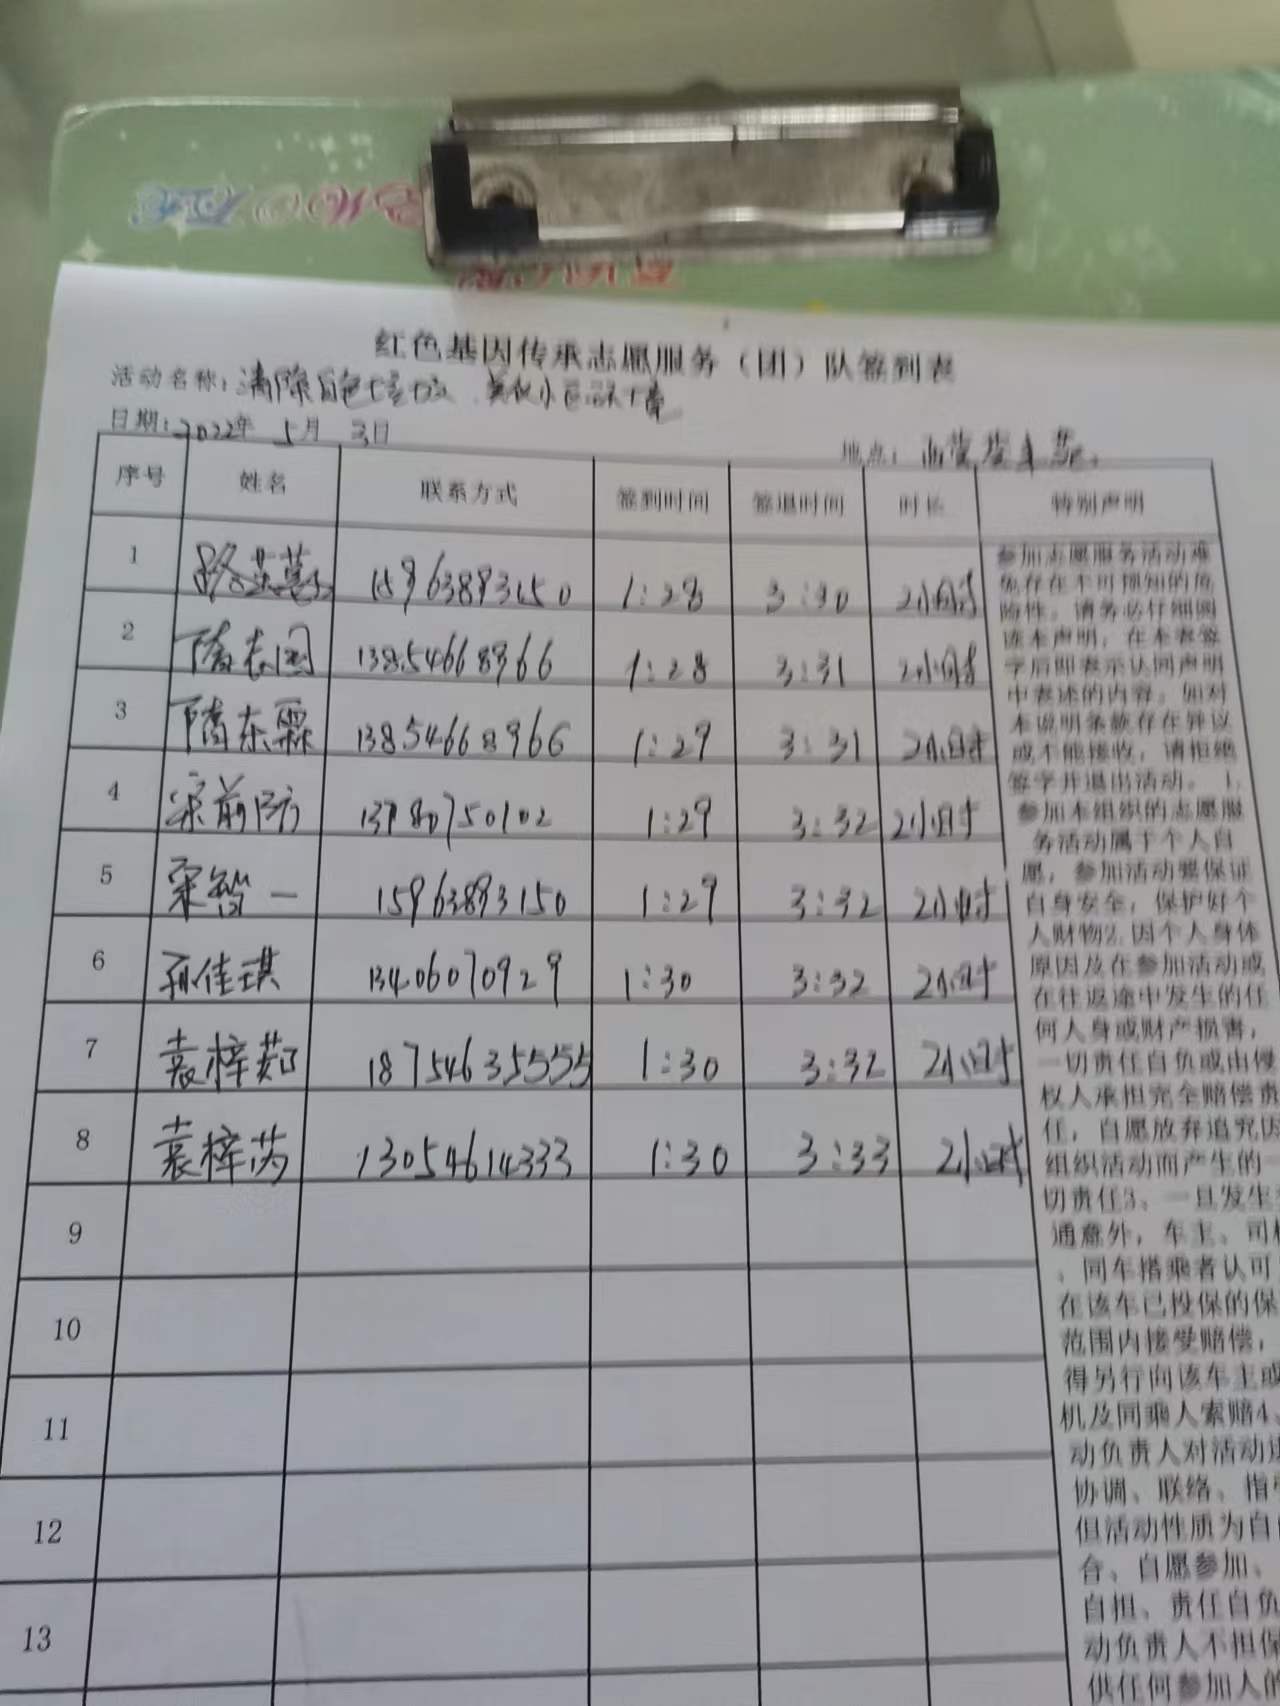 红色基因传承志愿服务（团）队签到表
活动名称：清除白色垃圾 美化小区环境
日期：2022年 5月 3日
地点：
序号 姓名 联系方式 签到时间 签退时间 时长 特别声明
1 15963893150 1:28 3:30 2小时
2 隋志国 13854668966 1:28 3:31 2小时
3 隋东霖 13854668966 1:29 3:31 2小时
4 宋前防 13780750102 1:29 3:32 2小时
5 宋智一 15963893150 1:29 3:32 2小时
6 孙佳琪 13406070929 1:30 3:32 2小时
7 袁梓茹 18754635555 1:30 3:32 2小时
8 袁梓芮 13054614333 1:30 3:33 2小时
9
10
11
12
13
参加志愿服务活动难
免存在不可预知的危
险性，请务必仔细阅
读本声明，在本表签
字后即表示认同声明
中表述的内容，如对
本说明条款存在异议
或不能接收，请拒绝
签字并退出活动。 1.
参加本组织的志愿服
务活动属于个人自
愿，参加活动要保证
自身安全，保护好个
人财物2.因个人身体
原因及在参加活动或
在往返途中发生的任
何人身或财产损害，
一切责任自负或由侵
权人承担完全赔偿责
任，自愿放弃追究因
组织活动而产生的一
切责任3、一旦发生
通意外，车主、司
、同车搭乘者认可
在该车已投保的保
范围内接受赔偿，
得另行向该车主或
机及同乘人索赔4、
动负责人对活动
协调、联络、指
但活动性质为自
合、自愿参加、
自担、责任自负
动负责人不担保
供任何参加人的